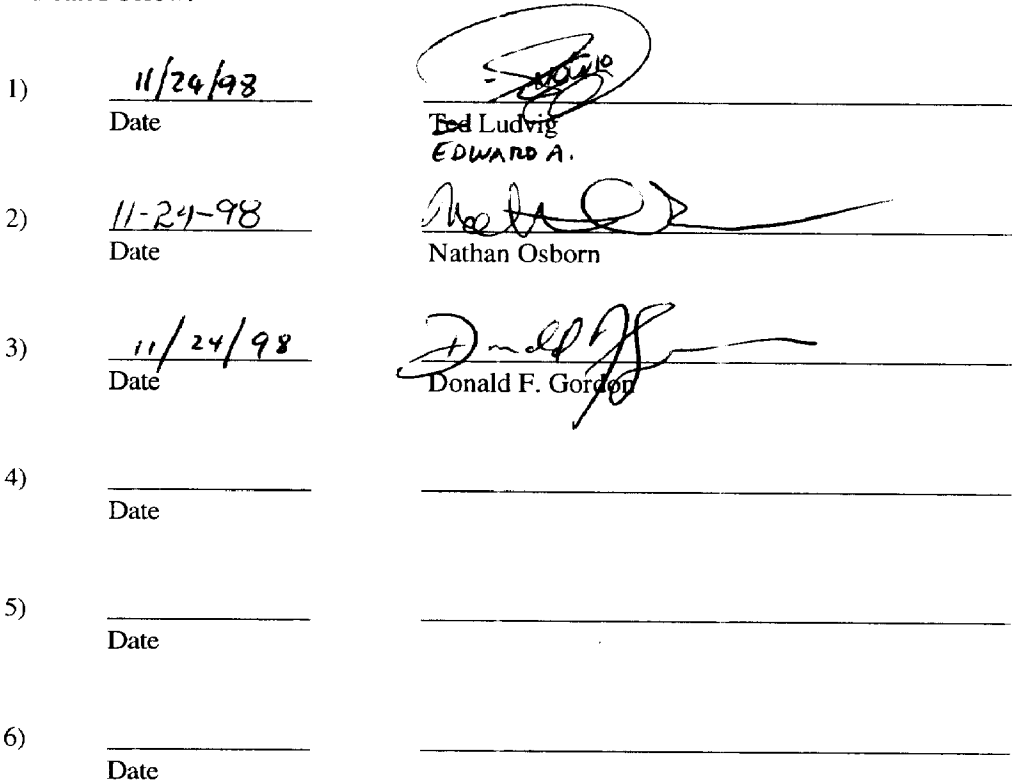 1) 11/24/98
Date Ted Ludvig
EDWARD A.
2) 11-24-98
Date Nathan Osborn
3) 11/24/98 Donald F. Gordon
Date Donald F. Gordon
4)
Date
5)
Date
6)
Date